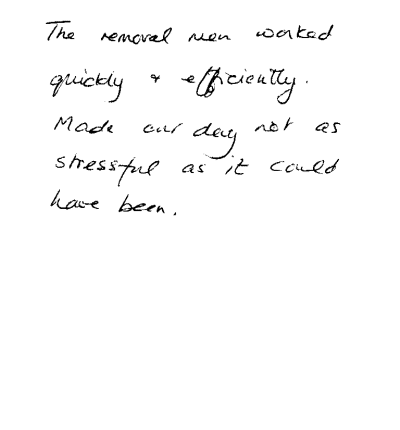 The removal men worked
quickly + efficiently.
Made our day not as
stressful as it could
have been.